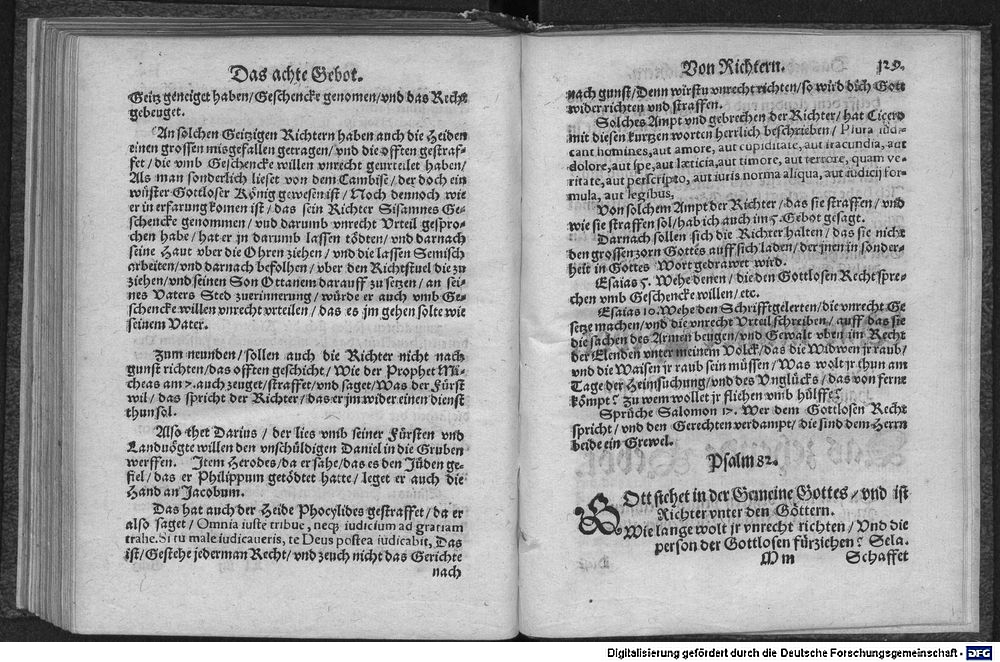 Das achte Gebot.
Geitz geneiget haben/Geschencke genomen/vnd das Recht
gebeuget.
An solchen Geitzigen Richtern haben auch die Heiden
einen grossen misgefallen getragen/vnd die offten gestraf-
fet/die vmb Geschencke willen vnrecht geurteilet haben/
Als man sonderlich lieset von dem Cambise/der doch ein
wüster Gottloser König gewesen ist/Noch dennoch wie
er in erfarung komen ist/das sein Richter Sisamnes Ge-
schencke genommen/vnd darumb vnrecht Vrteil gespro-
chen habe/hat er jn darumb lassen tödten/vnd darnach
seine Haut vber die Ohren ziehen/vnd die lassen Semisch
arbeiten/vnd darnach befolhen/vber den Richtstuel die zu
ziehen/vnd seinen Son Ottanem darauff zu setzen/an sei-
nes Vaters Sted zuerinnerung/würde er auch vmb Ge-
schencke willen vnrecht vrteilen/das es jm gehen solte wie
seinem Vater.
Zum neunden/sollen auch die Richter nicht nach
gunst richten/das offten geschicht/Wie der Prophet Mi-
cheas am 7. auch zeuget/straffet/vnd saget/Was der Fürst
wil/das spricht der Richter/das er jm wider einen dienst
thun sol.
Also thet Darius/der lies vmb seiner Fürsten vnd
Landuögte willen den vnschüldigen Daniel in die Gruben
werffen. Item Herodes/da er sahe/das es den Jüden ge-
fiel/das er Philippum getödtet hatte/leget er auch die
Hand an Jacobum.
Das hat auch der Heide Phocylides gestraffet/da er
also saget/Omnia iuste tribue, neq; iudicium ad gratiam
trahe. Si tu male iudicaueris, te Deus postea iudicabit, Das
ist/Gestehe jederman Recht/vnd zeuch nicht das Gerichte
nach
Von Richtern. 129.
nach gunst/Denn wirstu vnrecht richten/so wird dich Gott
wider richten vnd straffen.
Solches Ampt vnd gebrechen der Richter/hat Cicero
mit diesen kurtzen worten herrlich beschrieben/Plura iudi-
cant homines, aut amore, aut cupiditate, aut iracundia, aut
dolore, aut spe, aut læticia, aut timore, aut terrore, quam ve-
ritate, aut perscripto, aut iuris norma aliqua, aut iudicij for-
mula, aut legibus.
Von solchem Ampt der Richter/das sie straffen/vnd
wie sie straffen sol/hab ich auch im 5. Gebot gesagt.
Darnach sollen sich die Richter halten/das sie nicht
den grossen zorn Gottes auff sich laden/der jnen in sonder-
heit in Gottes Wort gedrawet wird.
Esaias 5. Wehe denen/die den Gottlosen Recht spre-
chen vmb Geschencke willen/etc.
Esaias 10. Wehe den Schrifftgelerten/die vnrecht Ge
setze machen/vnd die vnrecht Vrteil schreiben/auff das sie
die sachen des Armen beugen/vnd Gewalt vben im Recht
der Elenden vnter meinem Volck/das die Widwen jr raub/
vnd die Waisen jr raub sein müssen/Was wolt jr thun am
Tage der Heimsuchung/vnd des Vnglücks/das von ferne
kömpt? Zu wem wollet jr fliehen vmb hülffe?
Sprüche Salomon 17. Wer dem Gottlosen Recht
spricht/vnd den Gerechten verdampt/die sind dem Herrn
beide ein Grewel.
Psalm 82.
GOtt stehet in der Gemeine Gottes/vnd ist
Richter vnter den Göttern.
Wie lange wolt jr vnrecht richten/Vnd die
person der Gottlosen fürziehen? Sela.
Mm Schaffet
Digitalisierung gefördert durch die Deutsche Forschungsgemeinschaft - DFG